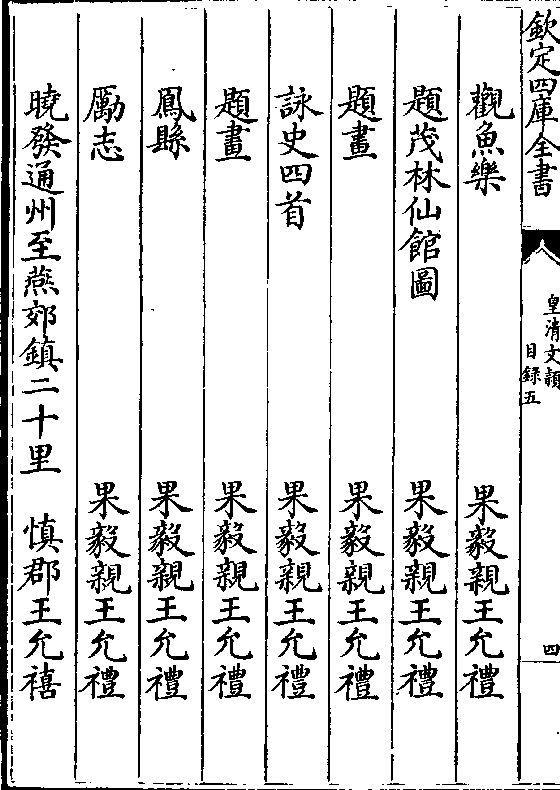 欽定四庫全書
皇清文穎
目録五
四
觀魚樂 果毅親王允禮
題茂林仙館圖 果毅親王允禮
題畫 果毅親王允禮
詠史四首 果毅親王允禮
題畫 果毅親王允禮
鳳縣 果毅親王允禮
勵志 果毅親王允禮
曉發通州至燕郊鎮二十里 慎郡王允禧